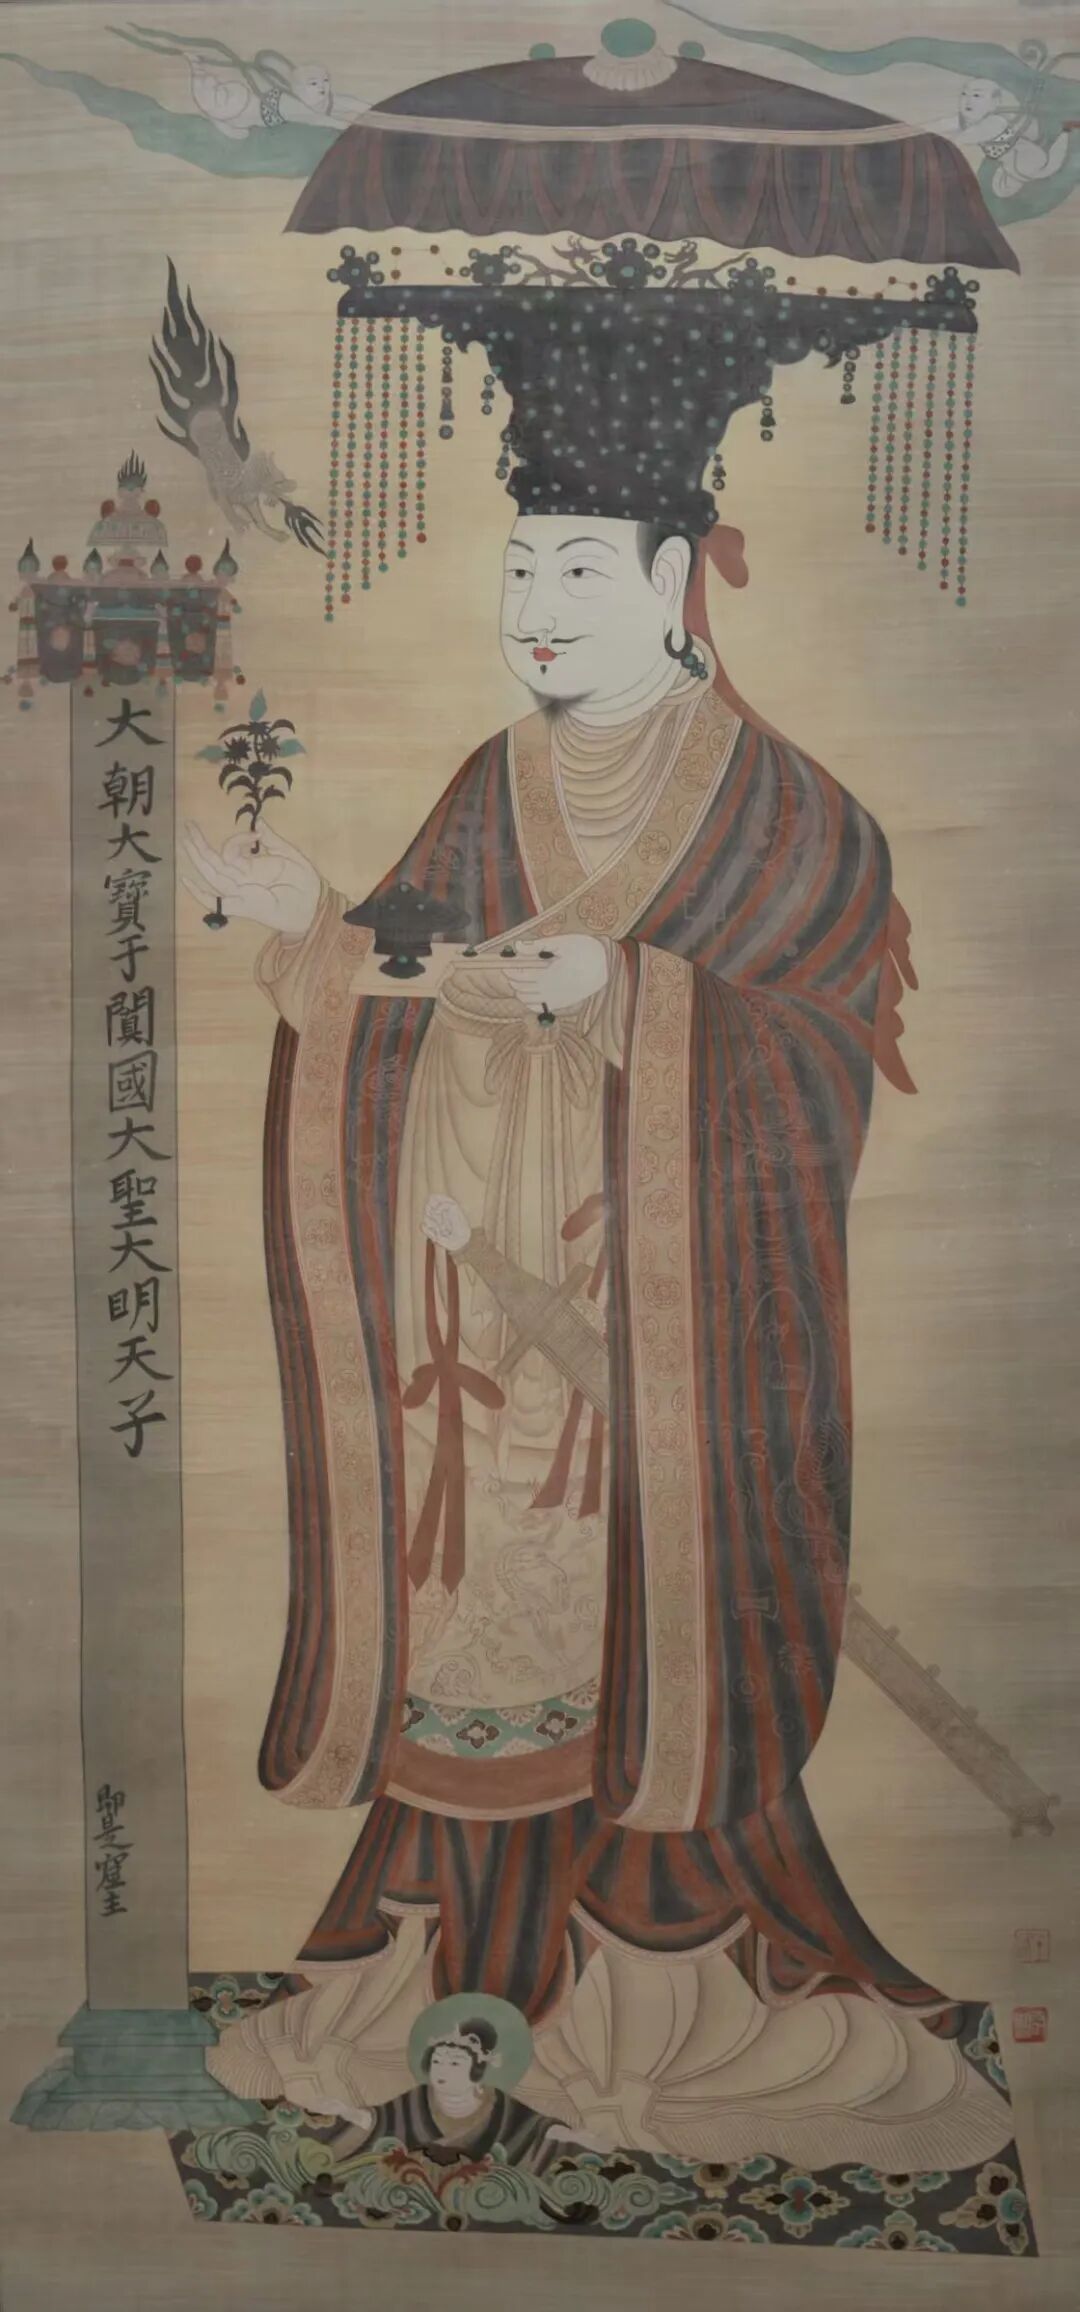 大朝大寶于闐國大聖大明天子
即是窟主